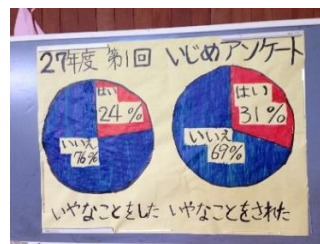 27年度 第1回 いじめアンケート
はい
24%
いいえ
76%
はい
31%
いいえ
69%
いやなことをした いやなことをされた